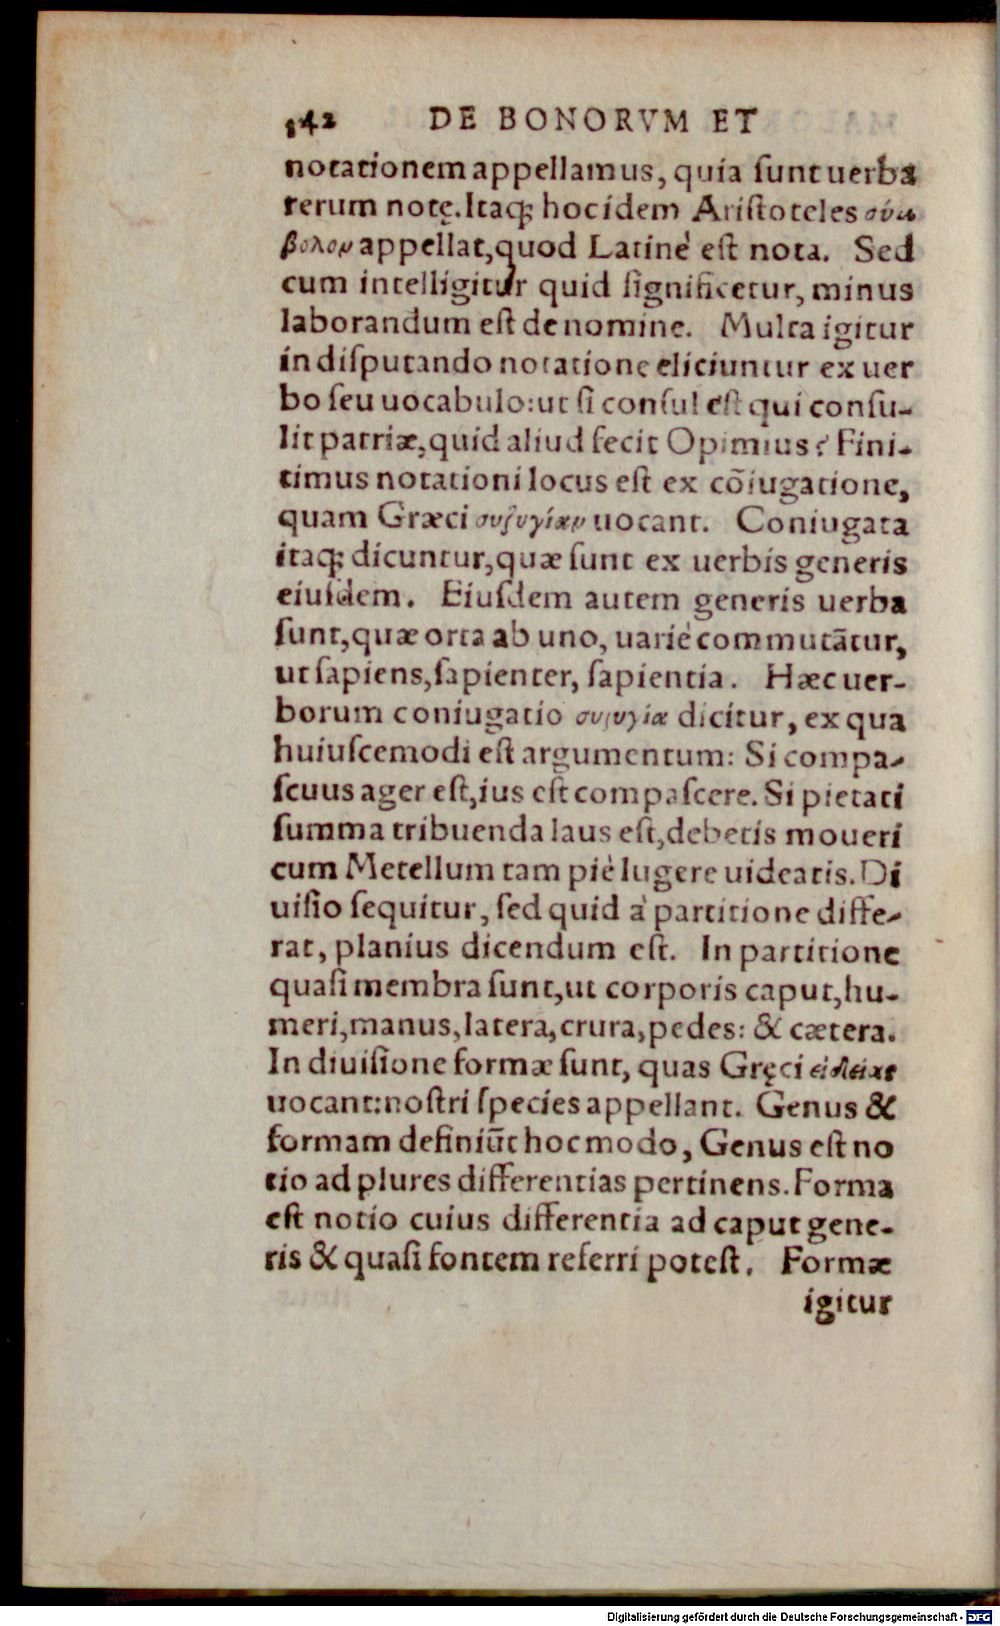 142 DE BONORVM ET
notationem appellamus, quia ſunt uerba
rerum notę. Itaq; hoc idem Ariſtoteles σύμ
βολομ appellat, quod Latinè eſt nota. Sed
cum intelligitur quid ſignificetur, minus
laborandum eſt de nomine. Multa igitur
in diſputando notatione eliciuntur ex uer
bo ſeu uocabulo: ut ſi conſul eſt qui conſu-
lit patriæ, quid aliud fecit Opimius? Fini-
timus notationi locus eſt ex cõiugatione,
quam Græci συζυγίαμ uocant. Coniugata
itaq; dicuntur, quæ ſunt ex uerbis generis
eiuſdem. Eiuſdem autem generis uerba
ſunt, quæ orta ab uno, uariè commutãtur,
ut ſapiens, ſapienter, ſapientia. Hæc uer-
borum coniugatio συζυγία dicitur, ex qua
huiuſcemodi eſt argumentum: Si compa-
ſcuus ager eſt, ius eſt compaſcere. Si pietati
ſumma tribuenda laus eſt, debetis moueri
cum Metellum tam piè lugere uideatis. Di
uiſio ſequitur, ſed quid à partitione diffe-
rat, planius dicendum eſt. In partitione
quaſi membra ſunt, ut corporis caput, hu-
meri, manus, latera, crura, pedes: & cætera.
In diuiſione formæ ſunt, quas Gręci
uocant: noſtri ſpecies appellant. Genus &
formam definiũt hoc modo, Genus eſt no
tio ad plures differentias pertinens. Forma
eſt notio cuius differentia ad caput gene-
ris & quaſi fontem referri poteſt. Formæ
igitur
Digitalisierung gefördert durch die Deutsche Forschungsgemeinschaft - DFG